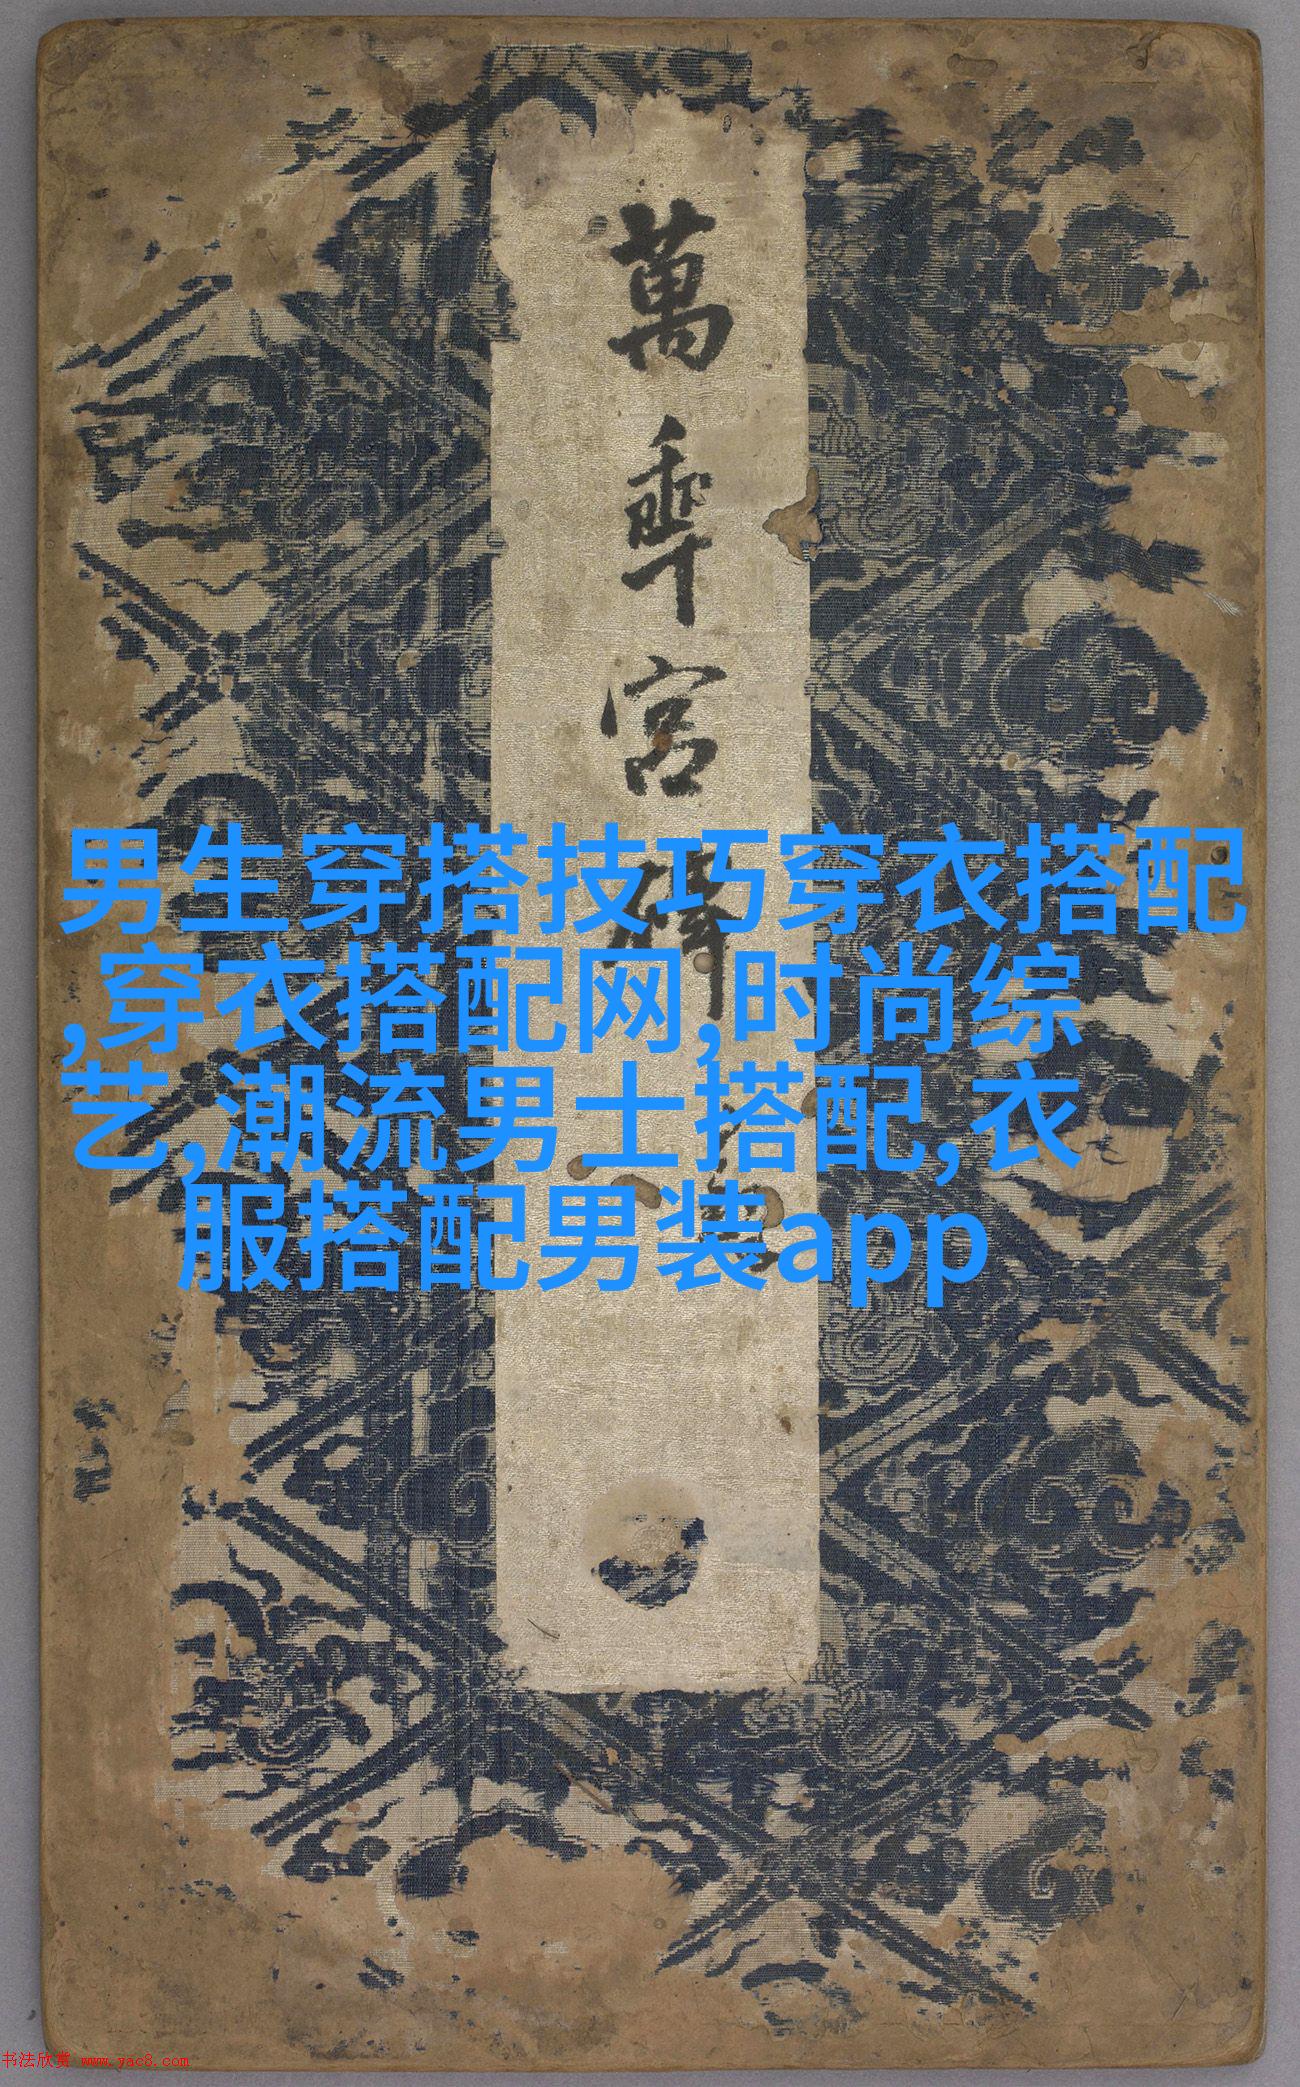 萬年宮碑
男生穿搭技巧穿衣搭配
,穿衣搭配网,时尚综
艺,潮流男士搭配,衣
服搭配男装app
书法欣赏 www.yac8.com